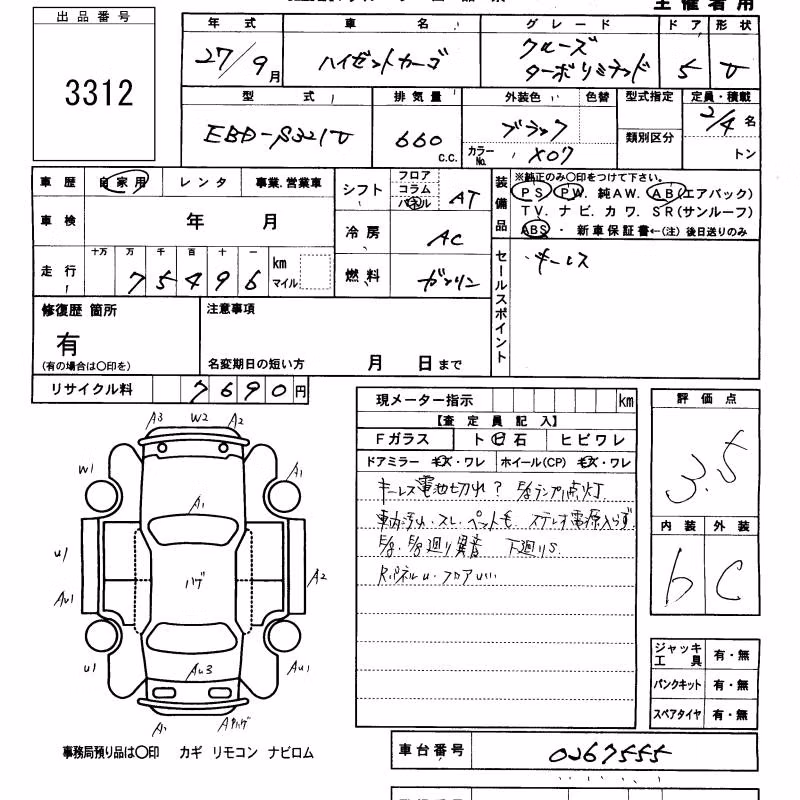 主催者用
出品番号
3312
年式 車名 グレード ドア 形状
27/9月 ハイゼットカーゴ クルーズ ターボリミテッド 5 V
型式 排気量 外装色 色替 型式指定 定員・積載
EBD-S321V 660 c.c. ブラック 2/4名
カラーNo. X07 類別区分 トン
車歴 自家用 レンタ 事業.営業車
シフト フロア コラム パネル AT
装備品 ※純正のみ○印をつけて下さい。
PS PW. 純AW. AB(エアバック)
TV. ナビ. カワ. SR(サンルーフ)
ABS ・ 新車保証書←(注) 後日送りのみ
車検 年 月
冷房 AC
走行 十万 万 千 百 十 一
75496 km マイル
燃料 ガソリン
セールスポイント
・キーレス
修復歴 箇所
有
(有の場合は○印を)
注意事項
名変期日の短い方 月 日まで
リサイクル料 7690円
現メーター指示 km
【査定員記入】
Fガラス ト ビ 石 ヒビワレ
ドアミラー キズ・ワレ ホイール(CP) キズ・ワレ
キーレス電池切れ? E/gランプ点灯
車内汚れ・スレ・ペット毛 ステレオ電源入らず
E/g. F/g廻り異音 下廻りS
RパネルU・フロアU
評価点
3.5
内装 外装
b C
A3 W2 A2
W1 A1
A1
U1
ハゲ A2
AU1
U1 AU3 AU1
A1 Aハゲ
ジャッキ工具 有・無
パンクキット 有・無
スペアタイヤ 有・無
事務局預り品は○印 カギ リモコン ナビロム
車台番号 0267555